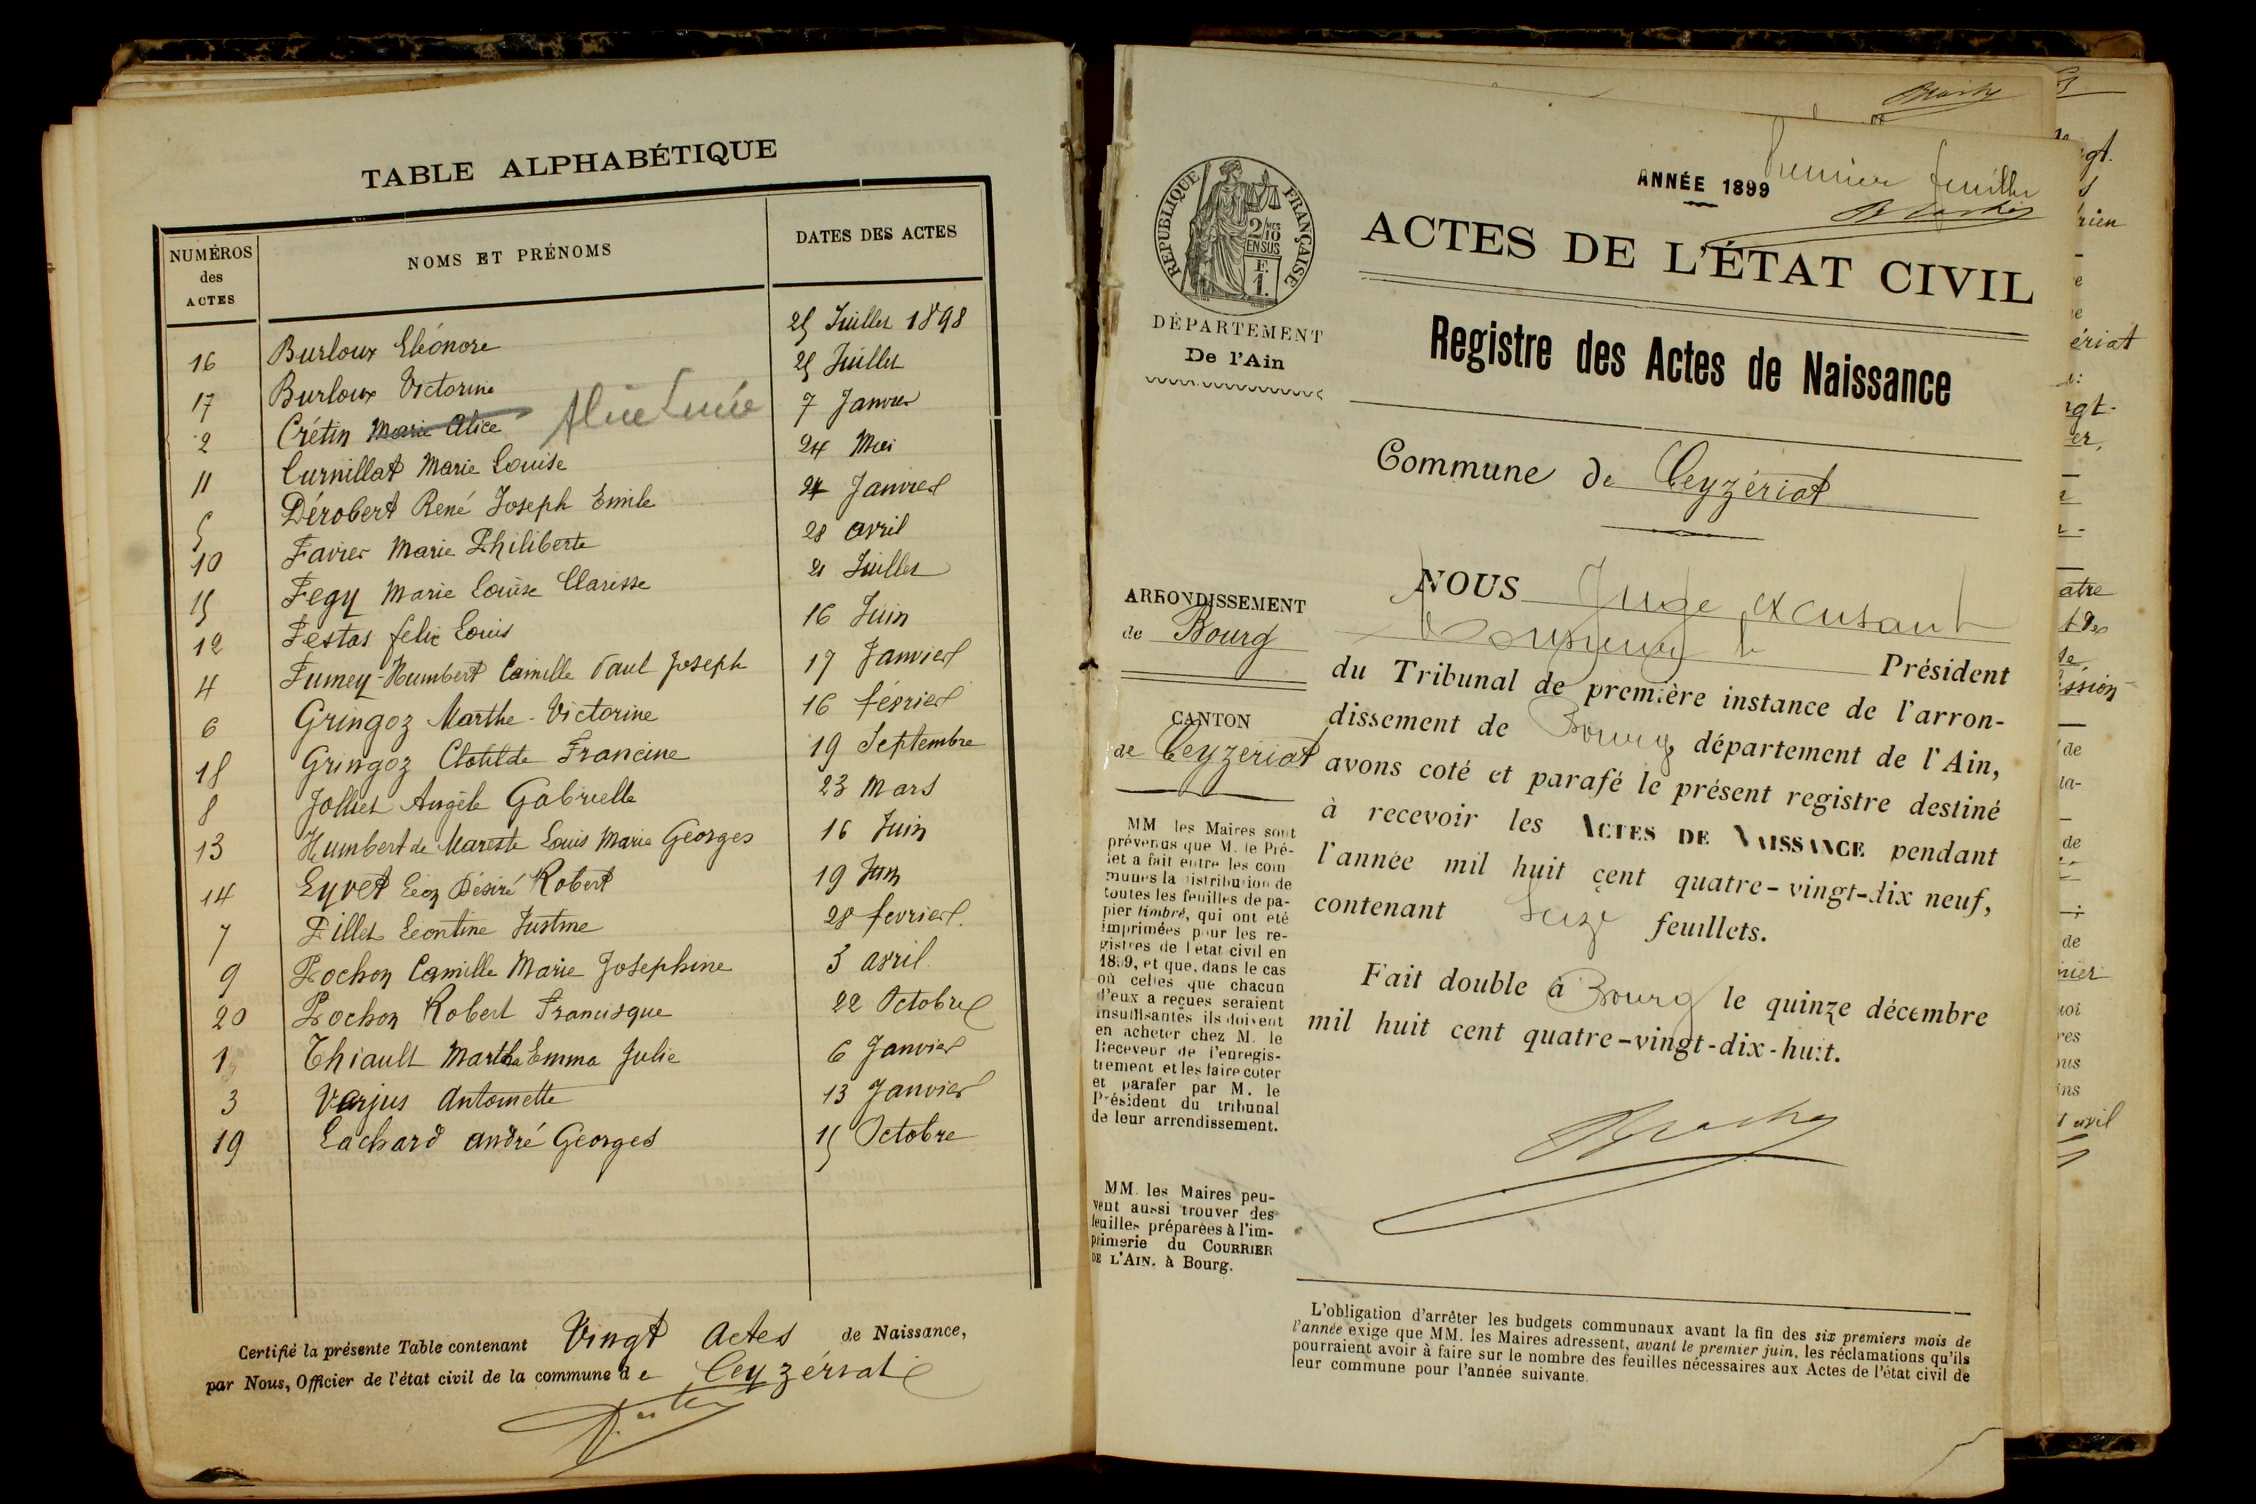 TABLE ALPHABÉTIQUE
NUMÉROS des ACTES NOMS ET PRÉNOMS DATES DES ACTES
16 Burloux Eléonore 25 Juillet 1898
17 Burloux Victorine 25 Juillet
2 Crétin Marie Alice Alice Lucie 7 Janvier
11 Curnillat Marie Louise 24 Mai
5 Dérobert René Joseph Emile 24 Janvier
10 Favier Marie Philiberte 28 avril
15 Fegy Marie Louise Clarisse 21 Juillet
12 Festas felix Louis 16 Juin
4 Fumey-Humbert Camille Paul Joseph 17 Janvier
6 Gringoz Marthe-Victorine 16 février
18 Gringoz Clotilde Francine 19 Septembre
8 Jolliet Angèle Gabrielle 23 Mars
13 Humbert de Mareste Louis Marie Georges 16 Juin
14 Eyvet Léon Désiré Robert 19 Juin
7 Pillet Léontine Justine 28 fevrier.
9 Rochon Camille Marie Josephine 3 avril
20 Rochon Robert Francisque 22 Octobre
1 Thiault Martha Emma Julie 6 Janvier
3 Varjus Antoinette 13 Janvier
19 Lachard andré Georges 15 Octobre
Certifié la présente Table contenant Vingt Actes de Naissance,
par Nous, Officier de l'état civil de la commune de Ceyzériat
ANNÉE 1899
Premier feuillet
RÉPUBLIQUE FRANÇAISE
2/10 MES
EN SUS
F.
1.
ACTES DE L'ÉTAT CIVIL
DÉPARTEMENT
De l'Ain
Registre des Actes de Naissance
Commune de Ceyzériat
ARRONDISSEMENT
de Bourg
CANTON
de Ceyzériat
MM les Maires sont
prévenus que M. le Pré-
fet a fait entre les com
munes la distribution de
toutes les feuilles de pa-
pier timbré, qui ont été
imprimées pour les re-
gistres de l'état civil en
1899, et que, dans le cas
où celles que chacun
d'eux a reçues seraient
insuffisantes ils doivent
en acheter chez M. le
Receveur de l'enregis-
trement et les faire coter
et parafer par M. le
Président du tribunal
de leur arrondissement.
MM. les Maires peu-
vent aussi trouver des
feuilles préparées à l'im-
primerie du COURRIER
DE L'AIN. à Bourg.
NOUS Juge
Président
du Tribunal de première instance de l'arron-
dissement de Bourg, département de l'Ain,
avons coté et parafé le présent registre destiné
à recevoir les ACTES DE NAISSANCE pendant
l'année mil huit cent quatre-vingt-dix neuf,
contenant Seize feuillets.
Fait double à Bourg le quinze décembre
mil huit cent quatre-vingt-dix-huit.
L'obligation d'arrêter les budgets communaux avant la fin des six premiers mois de
l'année exige que MM. les Maires adressent, avant le premier juin, les réclamations qu'ils
pourraient avoir à faire sur le nombre des feuilles nécessaires aux Actes de l'état civil de
leur commune pour l'année suivante.